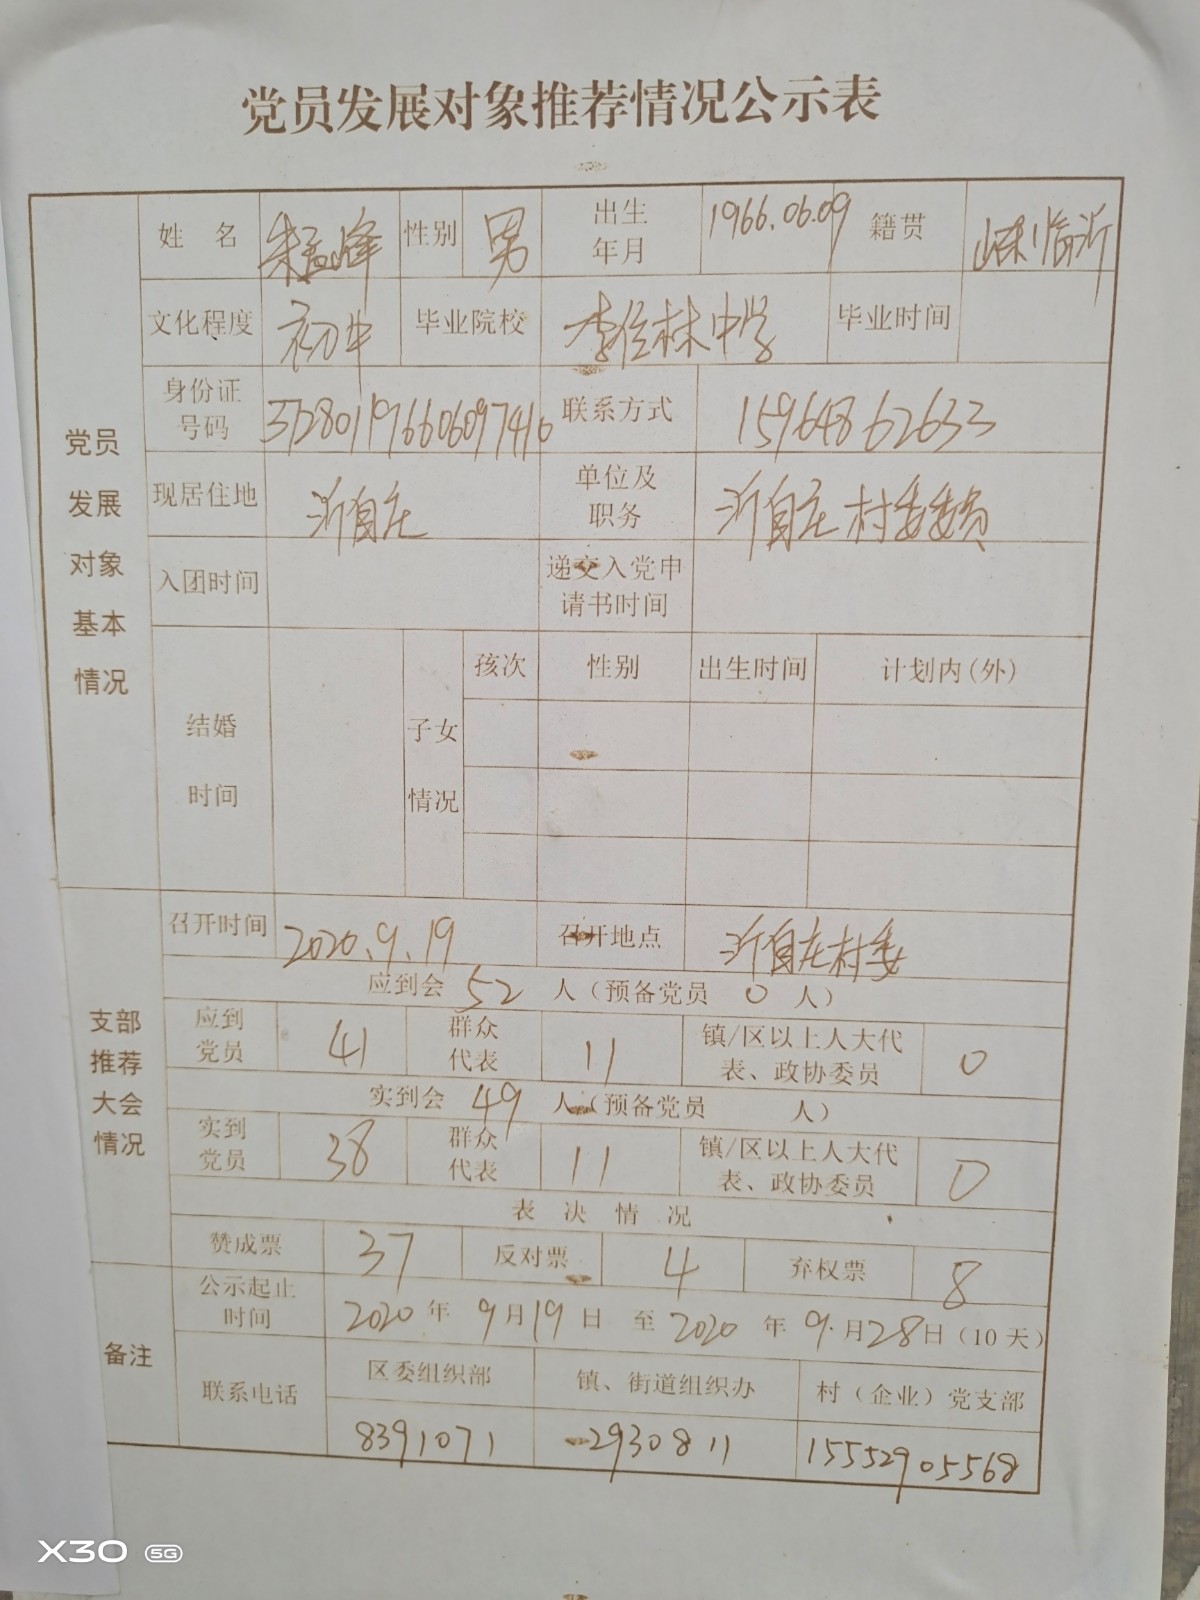 党员发展对象推荐情况公示表
党员发展对象基本情况
姓 名 朱孟峰 性别 男 出生年月 1966.06.09 籍贯 山东临沂
文化程度 初中 毕业院校 李官林中学 毕业时间
身份证号码 372801196606097410 联系方式 15964862633
现居住地 沂自庄 单位及职务 沂自庄村委委员
入团时间 递交入党申请书时间
结婚时间 子女情况 孩次 性别 出生时间 计划内(外)
支部推荐大会情况
召开时间 2020.9.19 召开地点 沂自庄村委
应到会 52 人(预备党员 0 人)
应到党员 41 群众代表 11 镇/区以上人大代表、政协委员 0
实到会 49 人(预备党员 人)
实到党员 38 群众代表 11 镇/区以上人大代表、政协委员 0
表 决 情 况
赞成票 37 反对票 4 弃权票 8
备注
公示起止时间 2020年 9月19日 至 2020 年 9.月28日(10天)
联系电话 区委组织部 镇、街道组织办 村(企业)党支部
8391071 2930811 15552905568
X30 5G